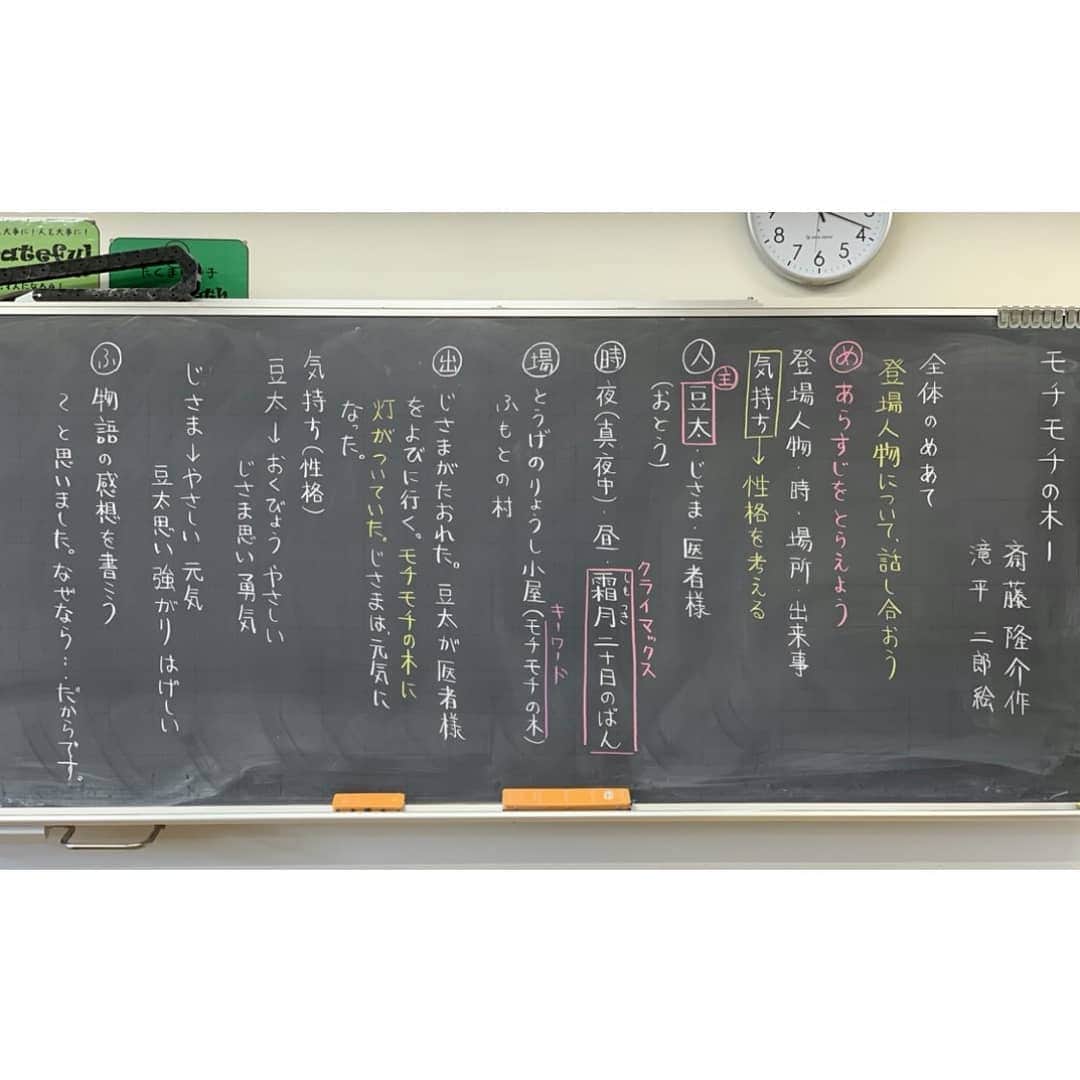 モチモチの木ー
斎藤隆介作
滝平二郎絵
全体のめあて
登場人物について、話し合おう
め あらすじをとらえよう
登場人物・時・場所・出来事
気持ち→性格を考える
人 主 豆太・じさま・医者様
(おとう)
クライマックス
時 夜(真夜中)・昼・霜月二十日のばん
しもつき
キーワード
場 とうげのりょうし小屋(モチモチの木)
ふもとの村
出 じさまがたおれた。豆太が医者様
をよびに行く。モチモチの木に
灯がついていた。じさまは、元気に
なった。
気持ち(性格)
豆太→おくびょう やさしい
じさま思い 勇気
じさま→やさしい 元気
豆太思い 強がり はげしい
ふ 物語の感想を書こう
〜と思いました。なぜなら…だからです。
ateful
8 7 6 5 4